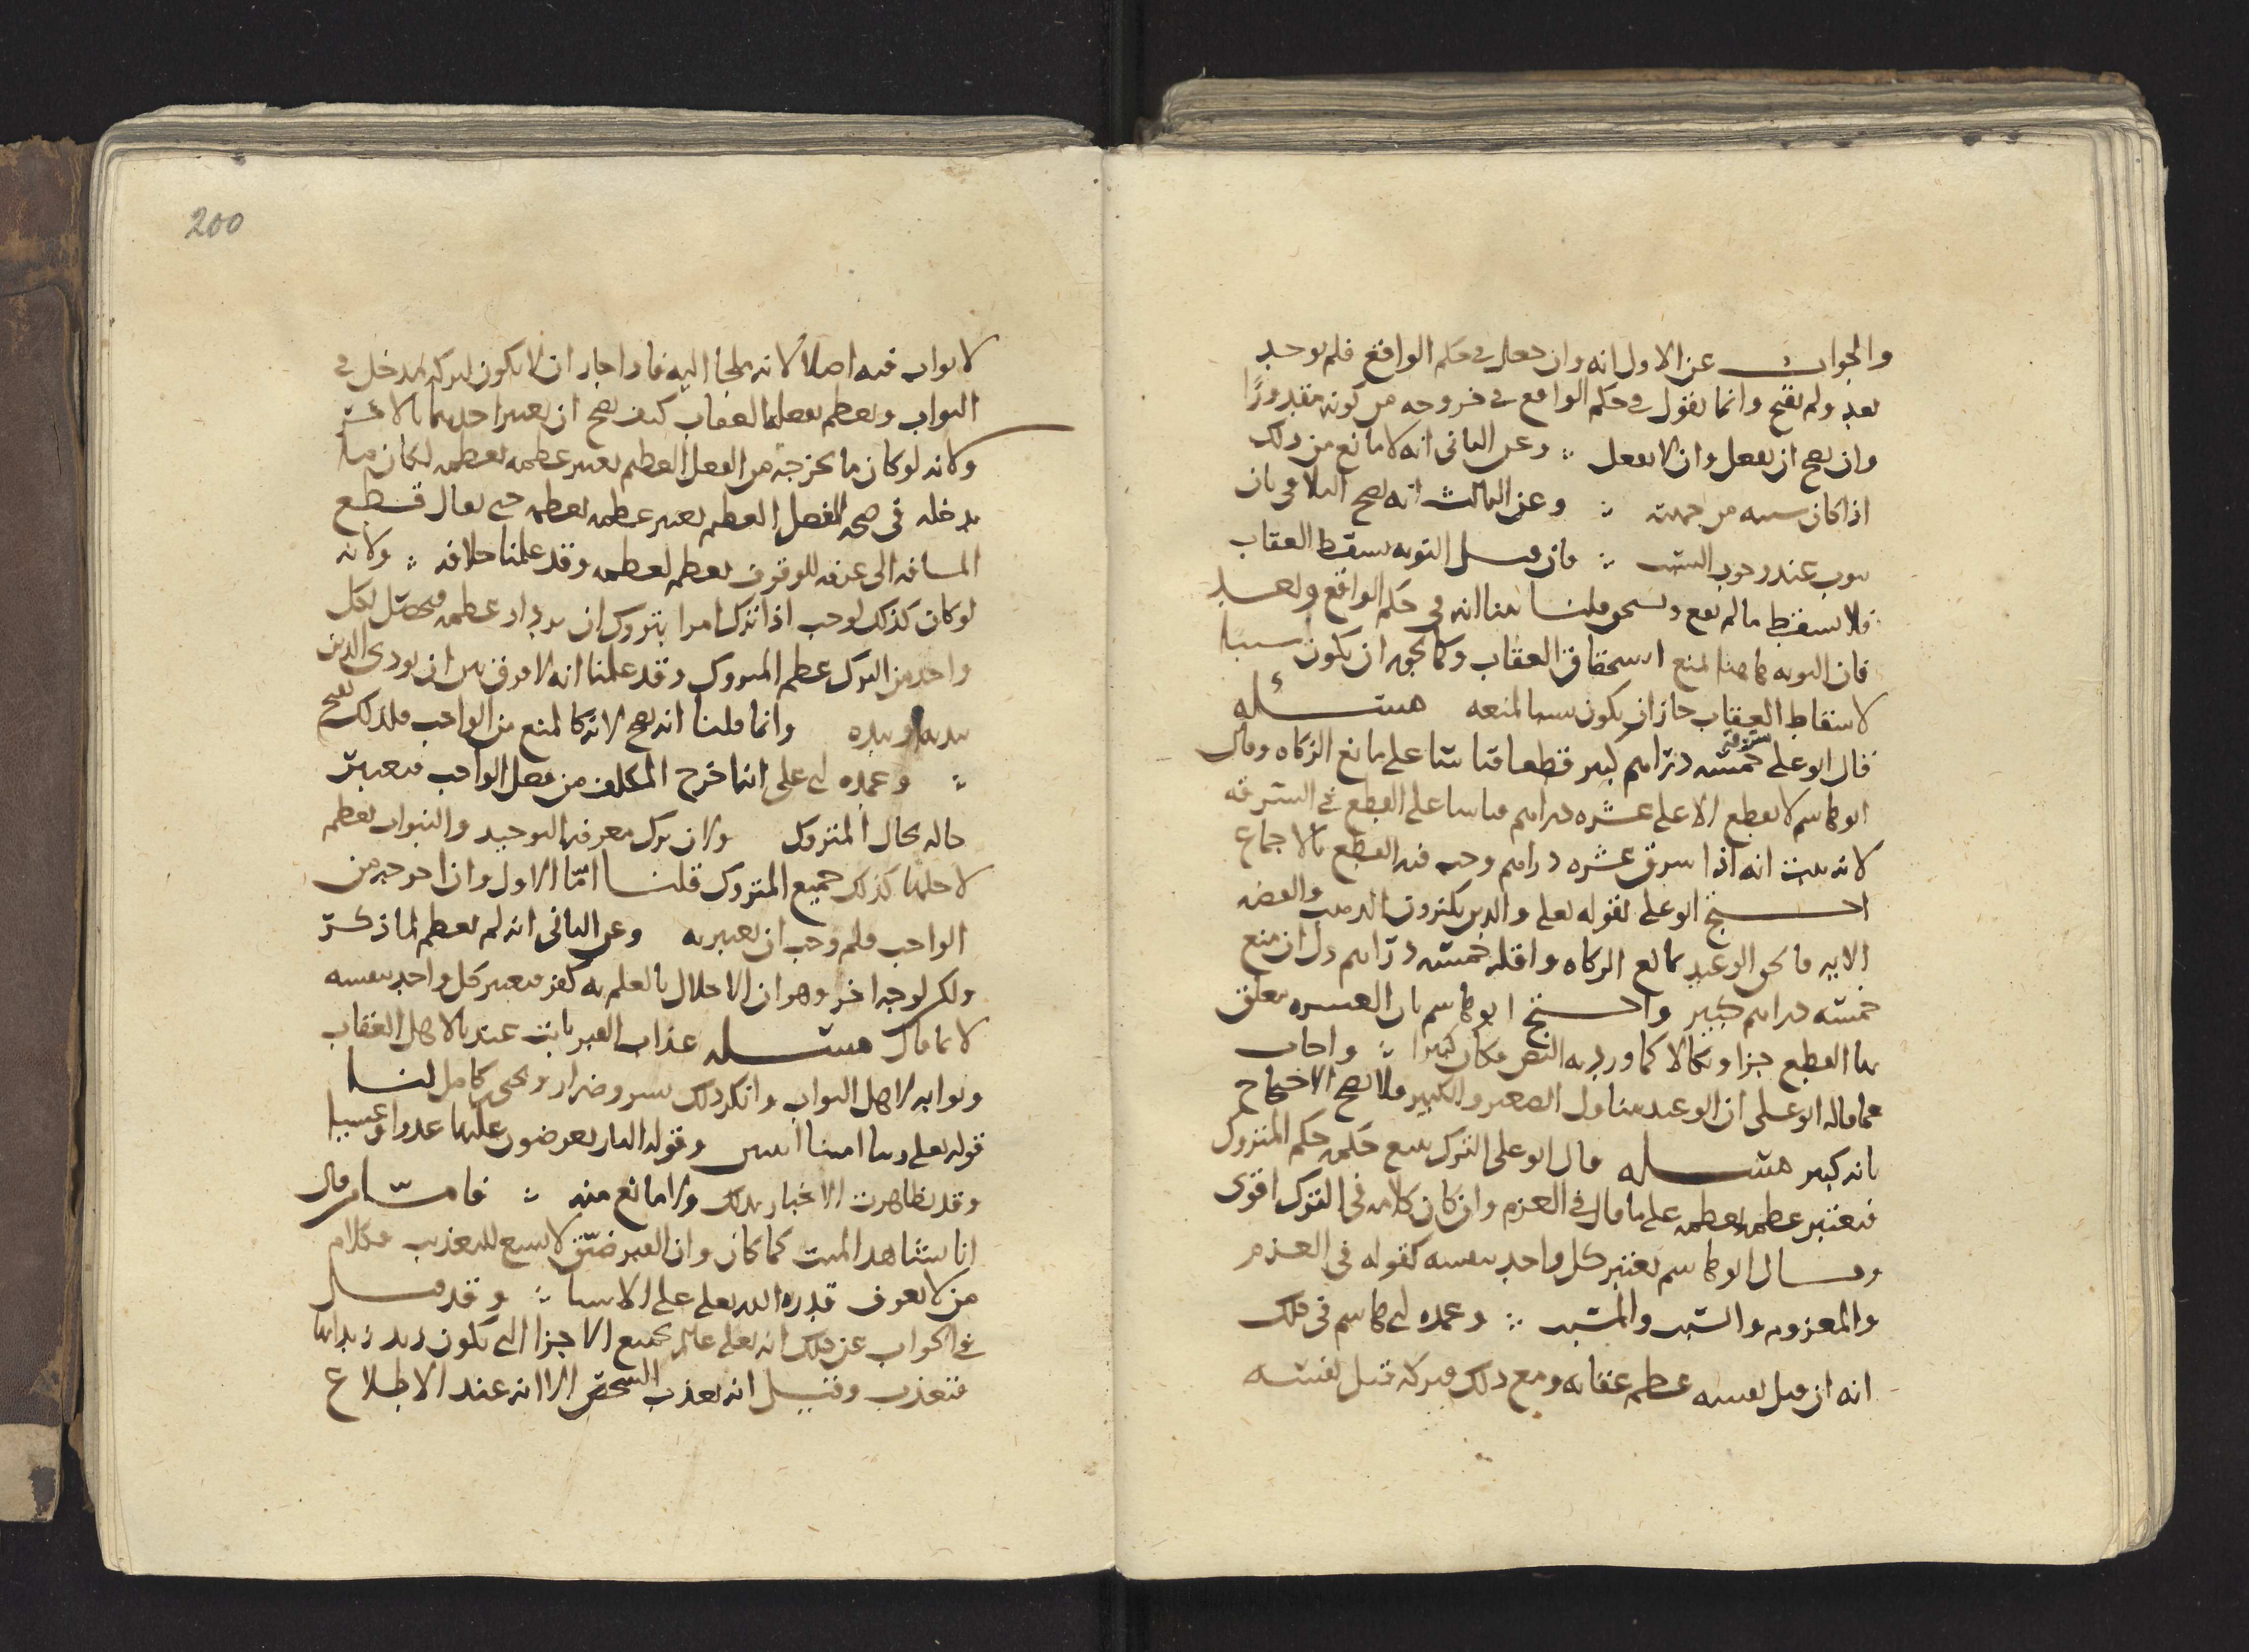 والجواب عن الاول انه وان جعل في حكم الواقع فلم يوجد
بعد ولم يقبح وانما نقول في حكم الواقع في خروجه من كونه مقدورًا
وان يصح ان يفعل وان لا يفعل وعن الثاني انه لا مانع من ذلك
اذا كان سببه من جهته وعن الثالث انه يصح التلافي بان
يتوب عند وجود السبب فان قيل التوبة تسقط العقاب
فلا تسقط ما لم يقع ويستحق قلنا بينا انه في حكم الواقع وبعد
فان التوبة هاهنا لمنع استحقاق العقاب وكما يجوز ان يكون سببا
لاسقاط العقاب جاز ان يكون سببا لمنعه مسئله
قال ابو علي سرقة خمسة دراهم كبير قطعا قياسا على مانع الزكاه وقال
ابو هاشم لا يقطع الا على عشره دراهم قياسا على القطع في السرقه
لانه يثبت انه اذا سرق عشره دراهم وجب فيه القطع بالاجماع
احتج ابو علي بقوله تعلى والذين يكنزون الذهب والفضه
الايه فالحق الوعيد بمانع الزكاه واقله خمسه دراهم دل ان منع
خمسه دراهم كبير واحتج ابو هاشم بان العشره تعلق
بها القطع جزا ونكالا كما ورد به النص فكان كبيرا واجاب
عما قاله ابو علي ان الوعيد يتناول الصغير والكبير فلا يصح الاحتجاج
بانه كبير مسئله قال ابو علي الترك يتبع حكمه حكم المتروك
فيعتبر عظمه بعظمه على ما قال في العزم وان كان كلامه في الترك اقوى
وقال ابو هاشم يعتبر كل واحد بنفسه كقوله في العزم
والمعزوم والسبب والمسبب وعمده ابي هاشم في ذلك
انه ان قتل نفسه عظم عقابه ومع ذلك فتركه قتل نفسه
200
لا ثواب فيه اصلا لانه ملجا اليه فاذا جاز ان لا يكون لتركه مدخل في
الثواب ويعظم بفعله العقاب كيف يصح ان يعتبر احدهما بالاخر
ولانه لو كان ما يخرجه من الفعل العظيم يعتبر عظمه بعظمه لكان ما
يدخله في صحة الفعل العظيم يعتبر عظمه بعظمه حتى يقال قطع
المسافه الى عرفه للوقوف يعظم لعظمه وقد علمنا خلافه ولانه
لو كان كذلك لوجب اذا ترك امرا بتروك ان يزداد عظمه فيحصل لكل
واحد من الترك عظم المتروك وقد علمنا انه لا فرق بين ان يودي الدين
بيديه او بيده وانما قلنا انه يصح لانه كالمنع من الواجب فلذلك يقبح
وعمده ابي علي انما خرج المكلف من فعل الواجب فيعتبر
حاله بحال المتروك ولان ترك معرفه التوحيد والنبوات يعظم
لاجلها كذلك جميع المتروك قلنا امّا الاول وان اخرجه من
الواجب فلم وجب ان يعتبر به وعن الثاني انه لم يعظم لما ذكرت
ولكن لوجه اخر وهو ان الاخلال بالعلم به كفر فيعتبر كل واحد بنفسه
لا بما قال مسئله عذاب القبر ثابت عندنا لاهل العقاب
وثوابه لاهل الثواب وانكر ذلك بشر وضرار ويحيى كامل لنا
قوله تعلى ربنا امتنا اثنتين وقوله النار يعرضون عليها غدوا وعشيا
وقد تظاهرت الاخبار بذلك ولا مانع منه فاما من قال
انا نشاهد الميت كما كان وان القبر ضيّق لا يسع للتعذيب فكلام
من لا يعرف قدره الله تعلى على الاشيا وقد قيل
في الجواب عن ذلك انه تعلى عالم بجميع الاجزا التي يكون زيد زيدا بها
فتعذب وقيل انه يعذب الشخص الا انه عند الاطلاع